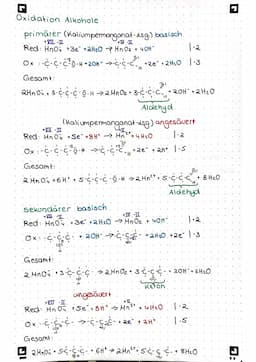 Oxidation Alkohole
primärer (Kaliumpermanganat-lsg) basisch
+VII -II +IV -II
Red: MnO₄⁻ + 3e⁻ + 2H₂O → MnO₂ + 4OH⁻ |·2
Ox: -C-C-C-O-H + 2OH⁻ → -C-C-C + 2e⁻ + 2H₂O |·3
Gesamt:
2MnO₄⁻ + 3-C-C-C-O-H → 2MnO₂ + 3-C-C-C + 2OH⁻ + 2H₂O
Aldehyd
(Kaliumpermanganat-lsg) angesäuert
+VII -II +II
Red: MnO₄⁻ + 5e⁻ + 8H⁺ → Mn²⁺ + 4H₂O |·2
Ox: -C-C-C-O-H → -C-C-C + 2e⁻ + 2H⁺ |·5
Gesamt:
2MnO₄⁻ + 6H⁺ + 5-C-C-C-O-H → 2Mn²⁺ + 5-C-C-C + 8H₂O
Aldehyd
sekundärer basisch
+VII -II +IV -II
Red: MnO₄⁻ + 3e⁻ + 2H₂O → MnO₂ + 4OH⁻ |·2
Ox: -C-C-C- + 2OH⁻ → -C-C-C- + 2H₂O + 2e⁻ |·3
Gesamt:
2MnO₄⁻ + 3-C-C-C- → 2MnO₂ + 3-C-C-C- + 2OH⁻ + 2H₂O
Keton
angesäuert
+VII -II +II
Red: MnO₄⁻ + 5e⁻ + 8H⁺ → Mn²⁺ + 4H₂O |·2
Ox: -C-C-C- → -C-C-C- + 2e⁻ + 2H⁺ |·5
Gesamt:
2MnO₄⁻ + 5-C-C-C- + 6H⁺ → 2Mn²⁺ + 5-C-C-C- + 8H₂O